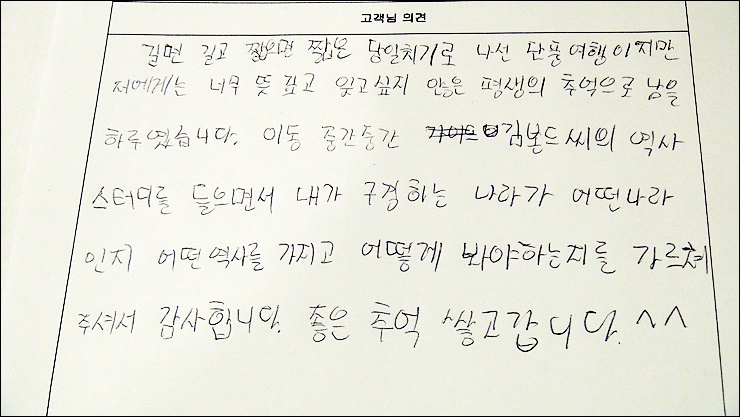 고객님 의견
길면 길고 짧으면 짧은 당일치기로 나선 단풍여행이지만
저에게는 너무 뜻 깊고 잊고싶지 않은 평생의 추억으로 남을
하루였습니다. 이동 중간중간 김본드씨의 역사
스터디를 들으면서 내가 구경하는 나라가 어떤나라
인지 어떤역사를 가지고 어떻게 봐야하는지를 가르쳐
주셔서 감사합니다. 좋은 추억 쌓고갑니다. ^^